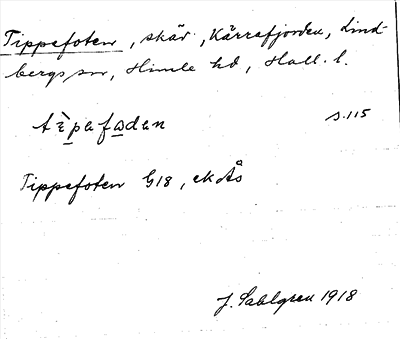 Tippefoten, skär, Kärrafjorden, Lind-
bergs sn, Himle hd, Hall. l.
tìpafɷdan s.115
Tippefoten G18, ek Ås
J. Sahlgren 1918